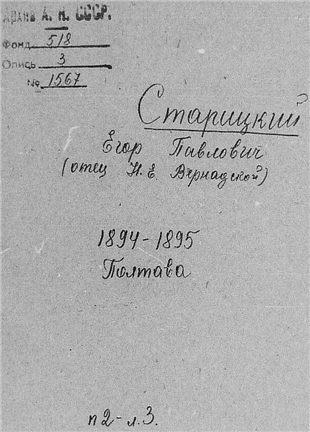 Архив А. Н. СССР.
Фонд 518
Опись 3
№ 1567
Старицкий
Егор Павлович
(отец Н. Е. Вернадской)
1894-1895
Полтава
п2-л.3.